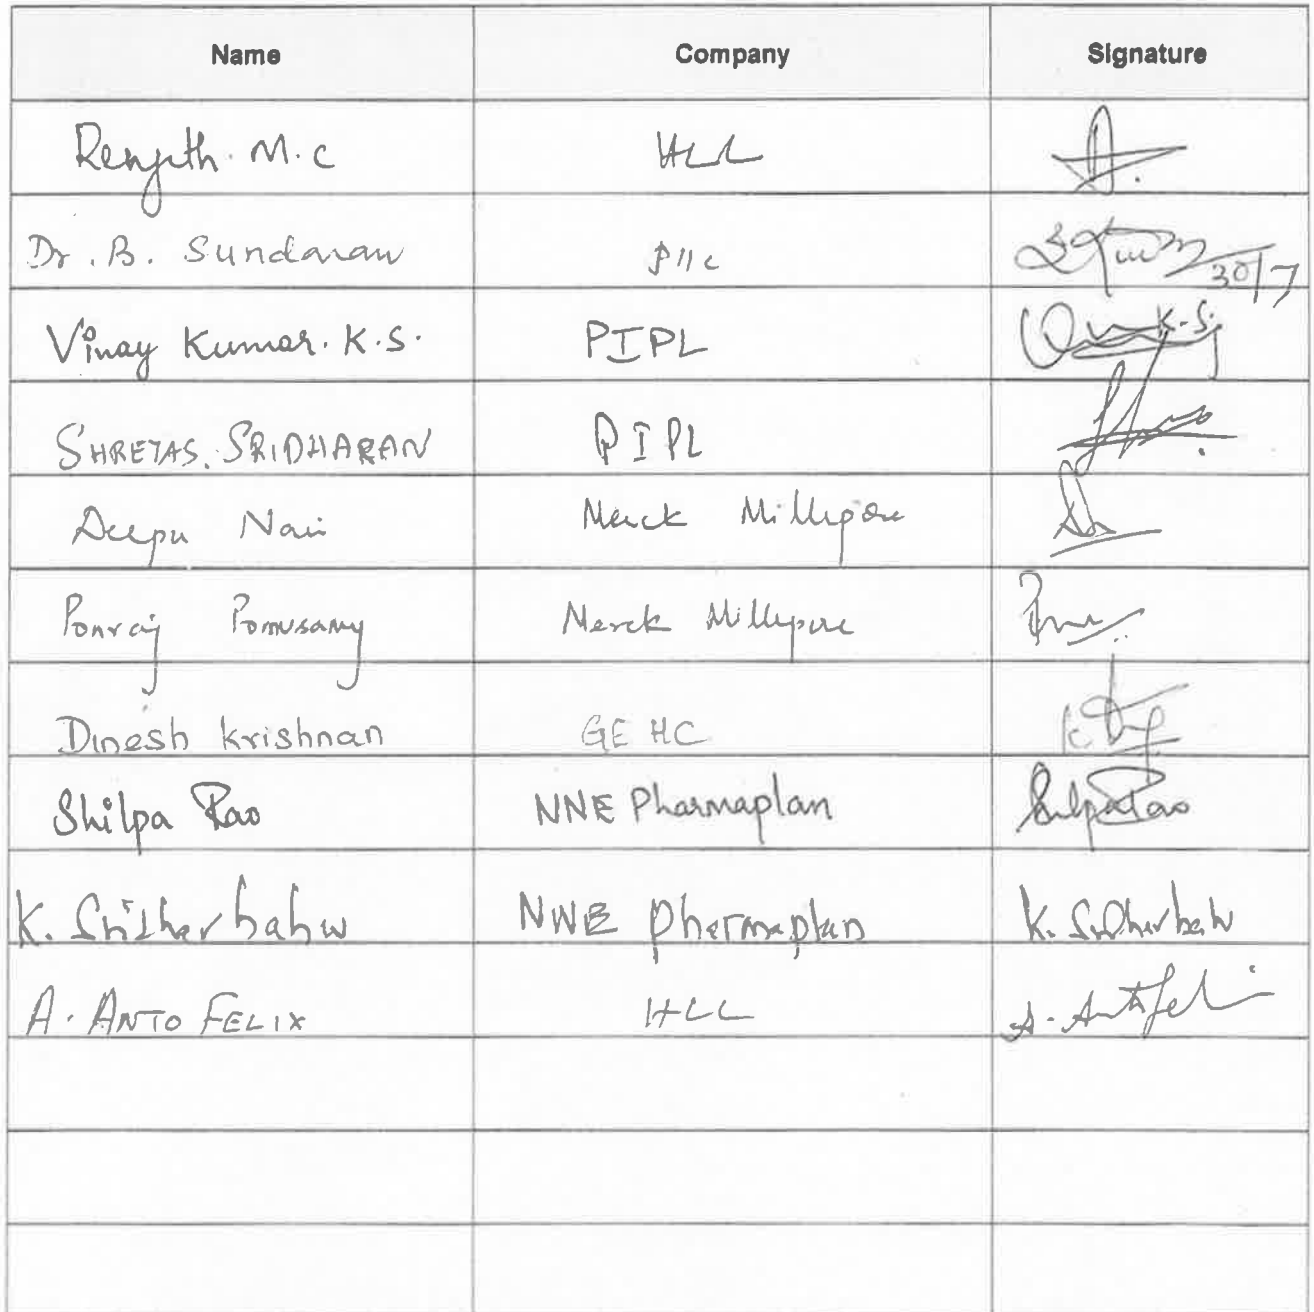 Name Company Signature
Renjith. M.C HLL
Dr. B. Sundaram PIIC 30/7
Vinay Kumar. K.S. PIPL K.S.
SHREYAS. SRIDHARAN PIPL
Deepu Nair Merck Millipore
Ponraj Ponnusamy Merck Millipore
Dinesh Krishnan GE HC
Shilpa Rao NNE Pharmaplan Shilpa Rao
K. Sridhar babu NNE Pharmaplan K. Sridhar babu
A. ANTO FELIX HLL A. Anto Feli